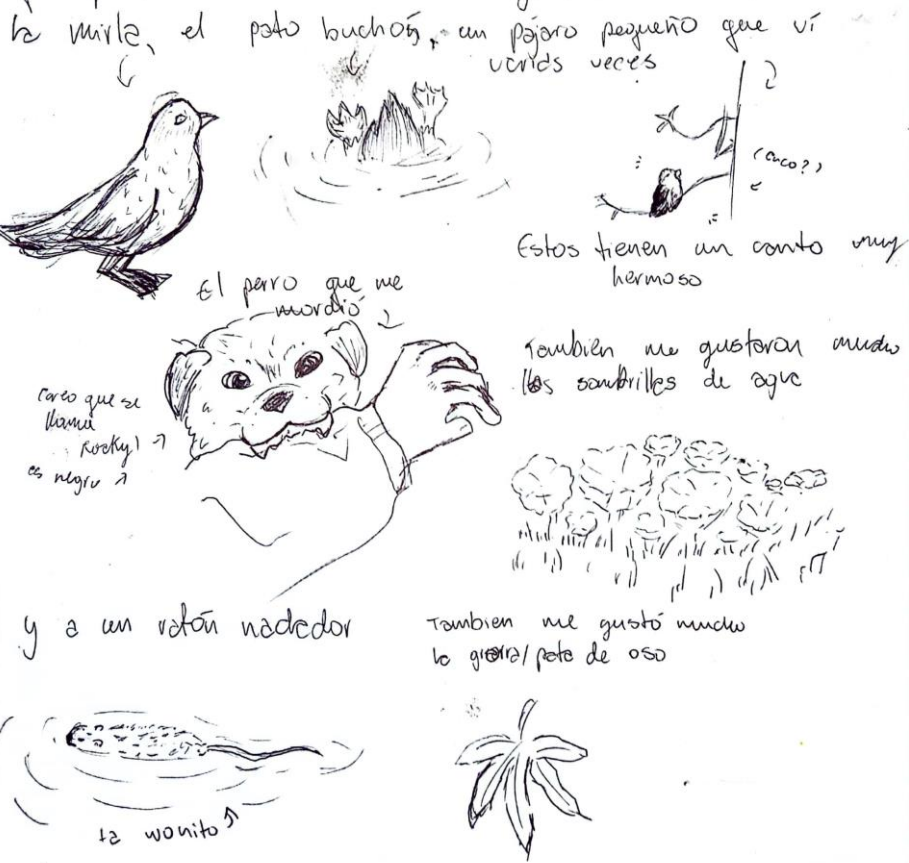 la mirla, el pato buchón, un pájaro pequeño que ví
varias veces
(cuco?)
Estos tienen un canto muy
hermoso
El perro que me
mordió
creo que se
llama
Rocky!
es negro
Tambien me gustaron mucho
las sombrillas de agua
y a un ratón nadador
ta wonito
Tambien me gustó mucho
la pata de oso